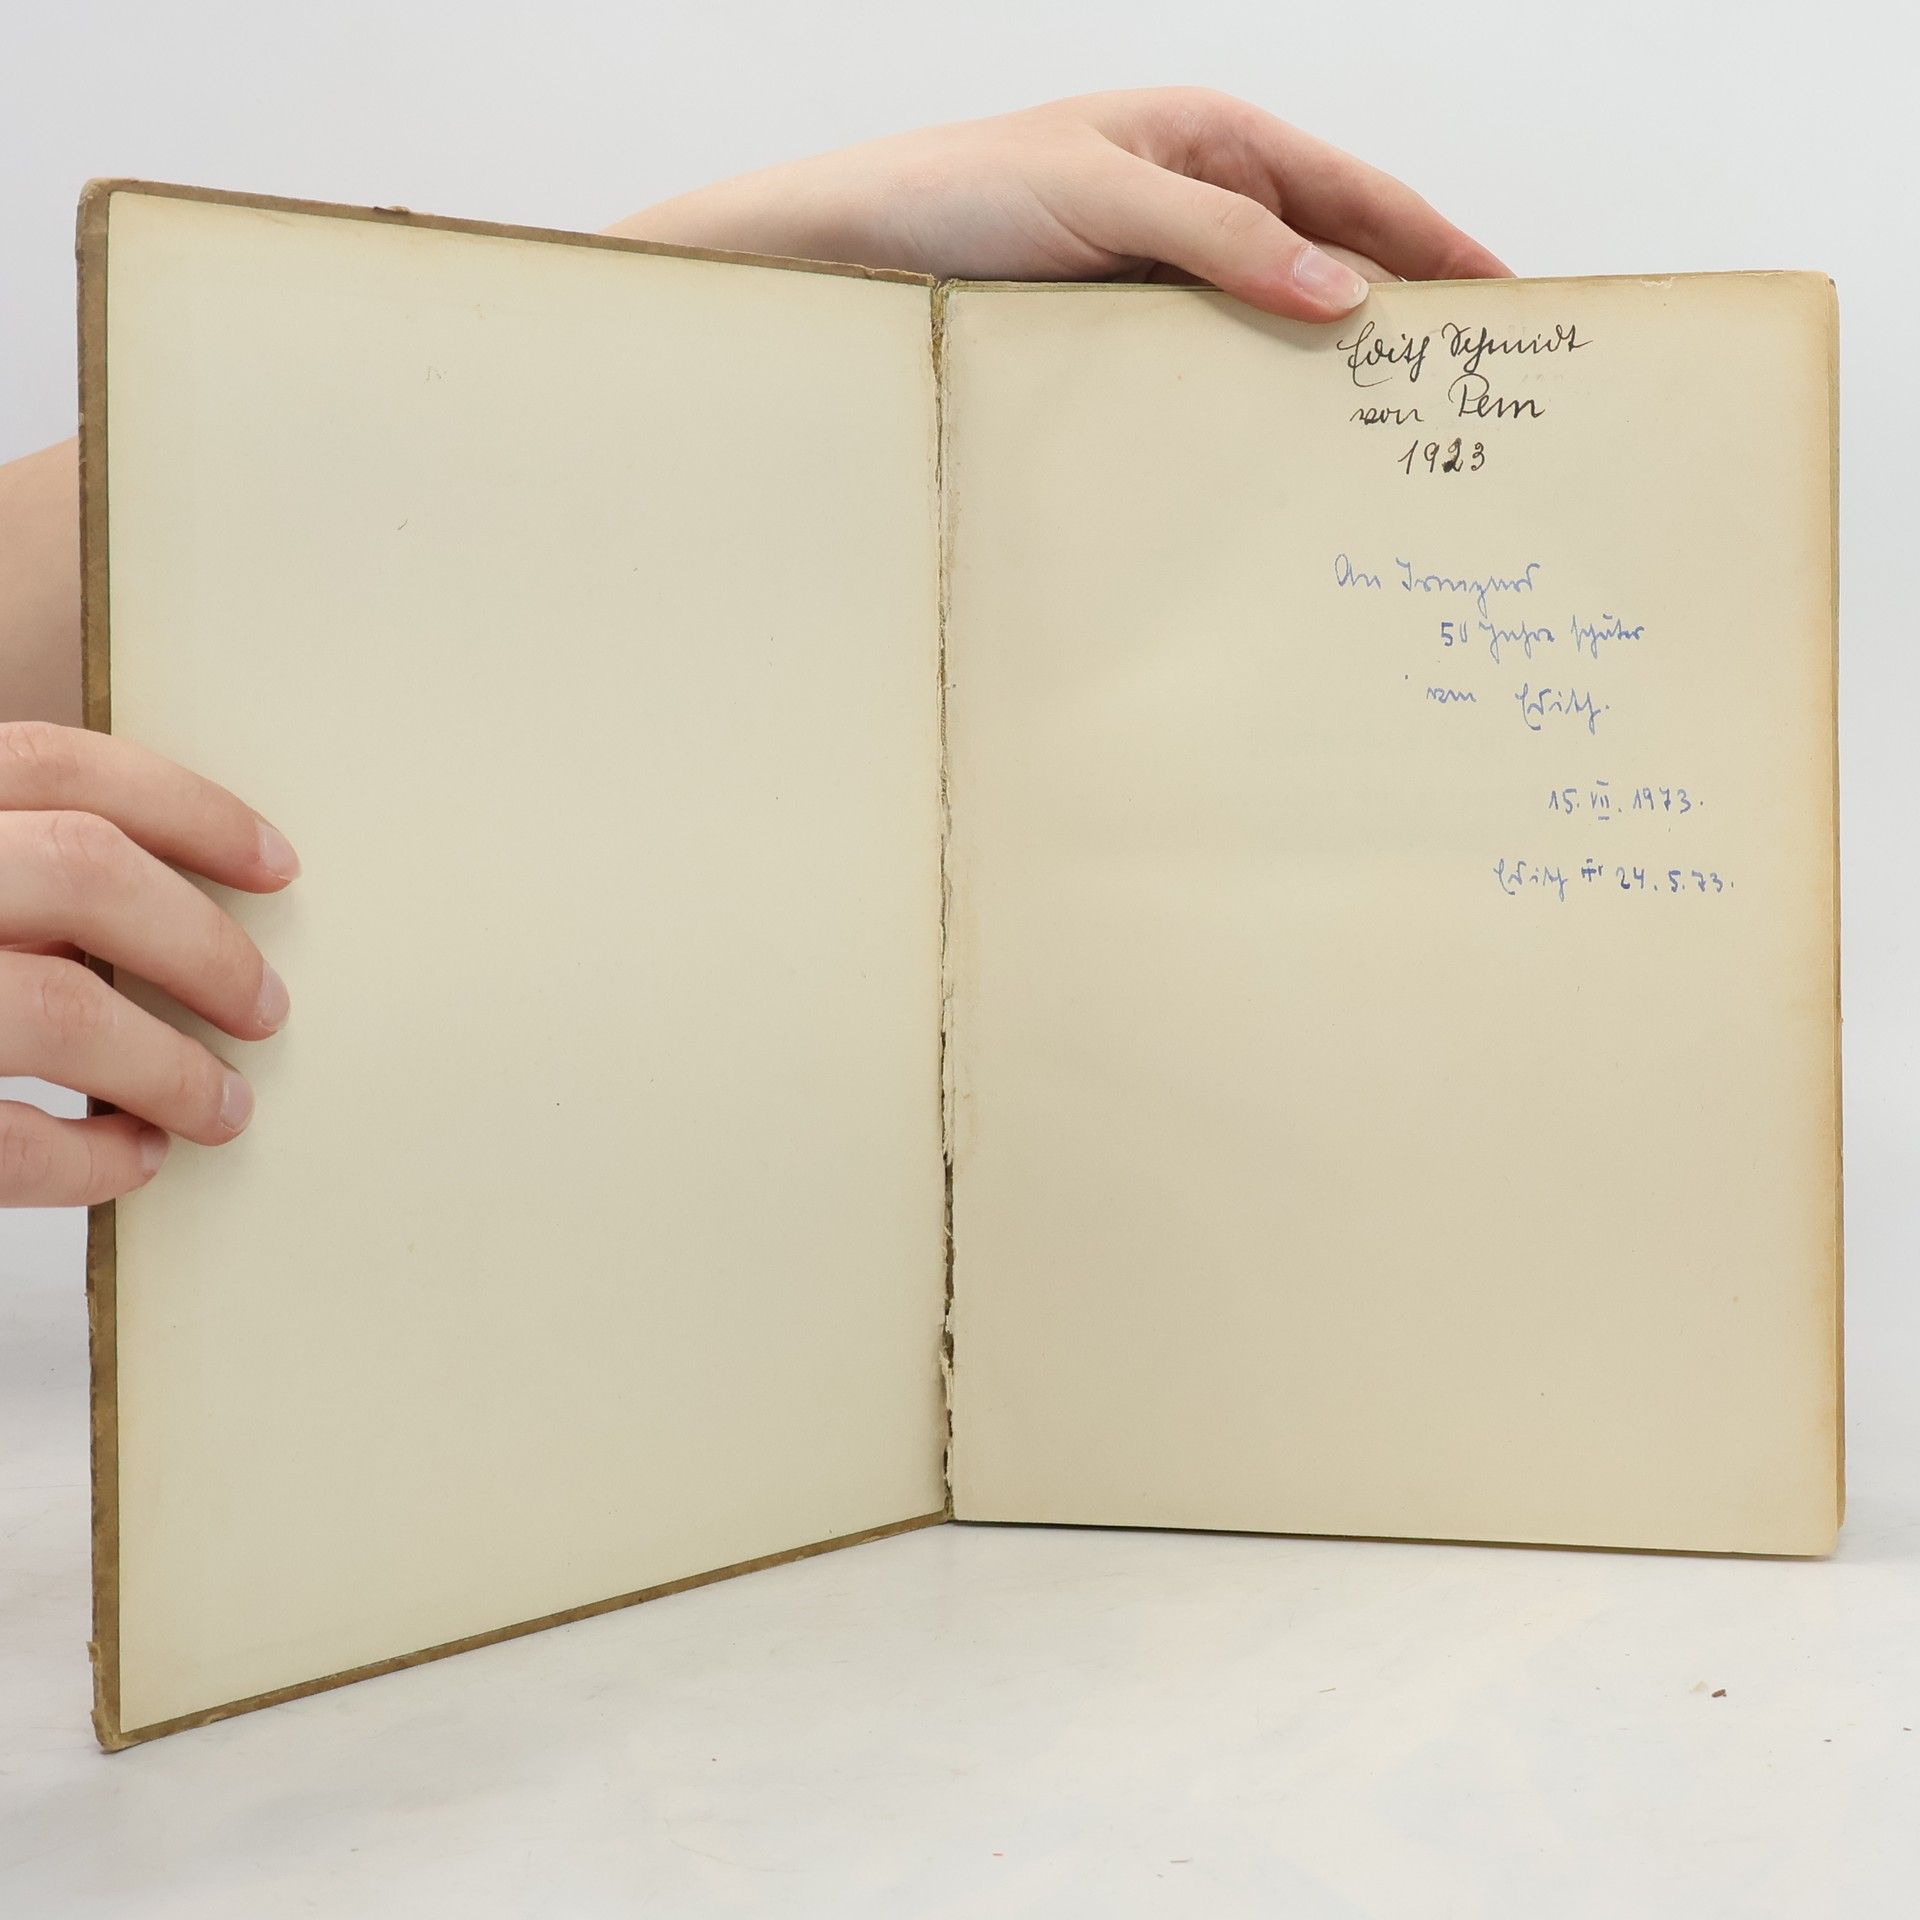 Edith Schmidt
von Pem
1923
An Irmgard
50 Jahre später
von Edith.
15. VII. 1973.
Edith 24. 5. 73.